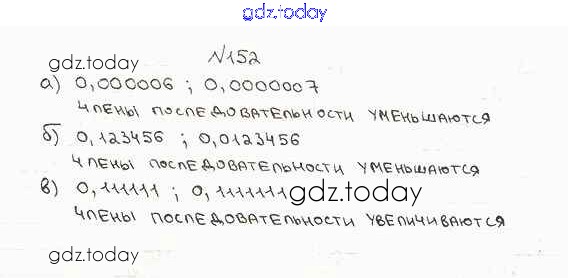 gdz.today
gdz.today
№152
а) 0,000006 ; 0,0000007
члены последовательности уменьшаются
б) 0,123456 ; 0,0123456
члены последовательности уменьшаются
в) 0,111111 ; 0,1111111
gdz.today
члены последовательности увеличиваются
gdz.today